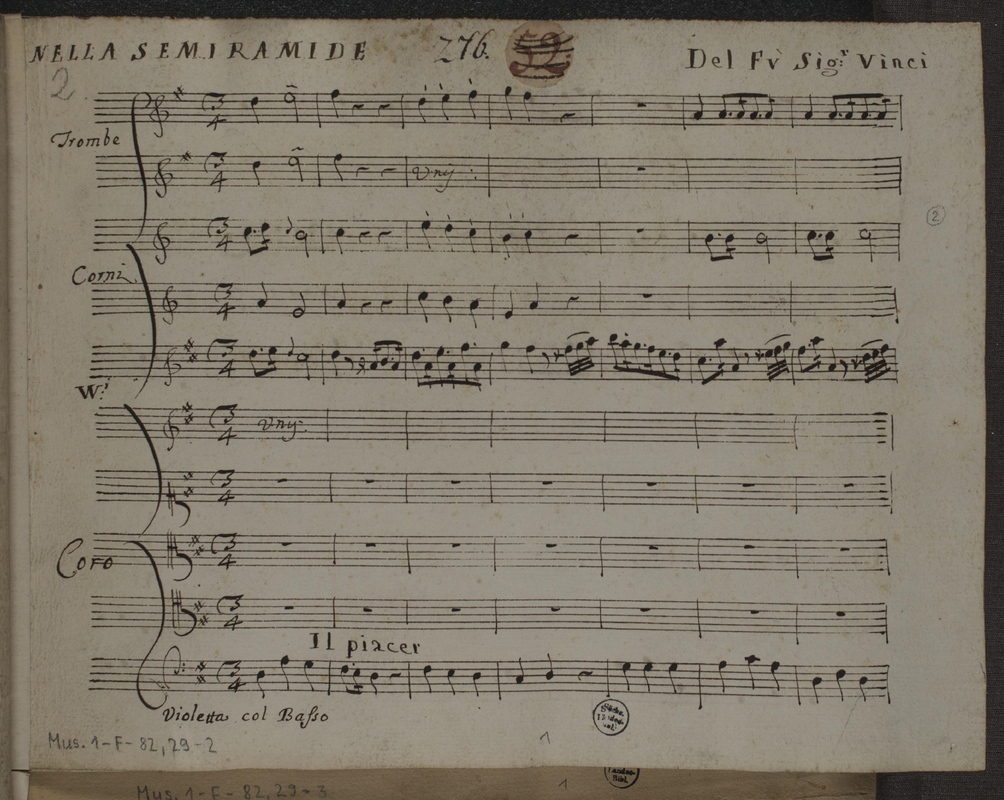 NELLA SEMIRAMIDE 276. 52. Del Fù Sig:r Vinci
2
Trombe
Vnj:
2
Corni
VV:
Vnj:
Coro
Il piacer
Violetta col Basso
Mus. 1-F-82,29-2
1
Mus. 1-F-82,29-3
1